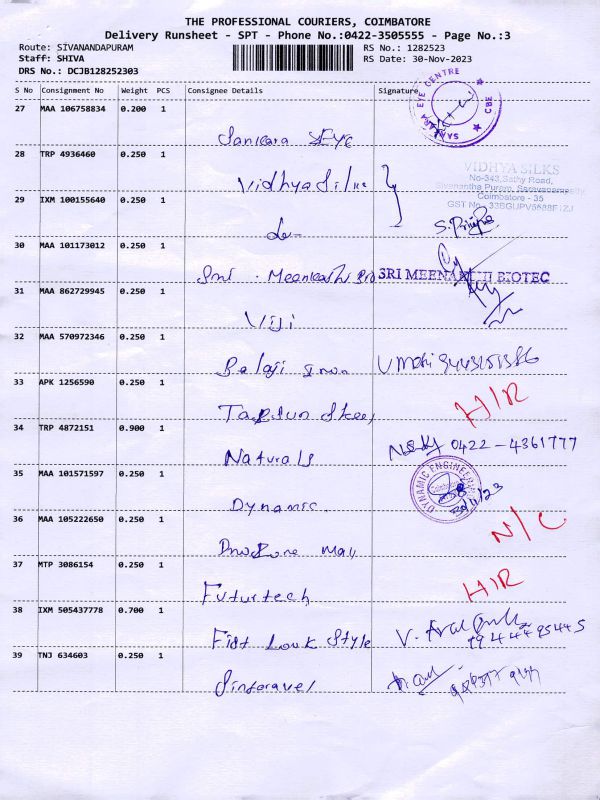 THE PROFESSIONAL COURIERS, COIMBATORE
Delivery Runsheet - SPT - Phone No.:0422-3505555 - Page No.:3
Route: SIVANANDAPURAM
RS No.: 1282523
Staff: SHIVA
RS Date: 30-Nov-2023
DRS No.: DCJB128252303
S No Consignment No Weight PCS Consignee Details Signature
SANKARA EYE CENTRE CBE
27 MAA 106758834 0.200 1
Sankara EYE
28 TRP 4936460 0.250 1
Vidhya Silks
VIDHYA SILKS
No-343, Sathy Road,
Sivanantha Puram, Saravanampatty
Coimbatore - 35
29 IXM 100155640 0.250 1
30 MAA 101173012 0.250 1
Meenakshi Bio
SRI MEENAKSHI BIOTEC
31 MAA 862729945 0.250 1
Viji
32 MAA 570972346 0.250 1
Balaji
33 APK 1256590 0.250 1
H/R
34 TRP 4872151 0.900 1
Naturals
0422-4361777
35 MAA 101571597 0.250 1
Dynamic
DYNAMIC ENGINEERING
30/11/23
36 MAA 105222650 0.250 1
Mall
N/C
37 MTP 3086154 0.250 1
Futurtech
H/R
38 IXM 505437778 0.700 1
Fist Look Style
39 TNJ 634603 0.250 1